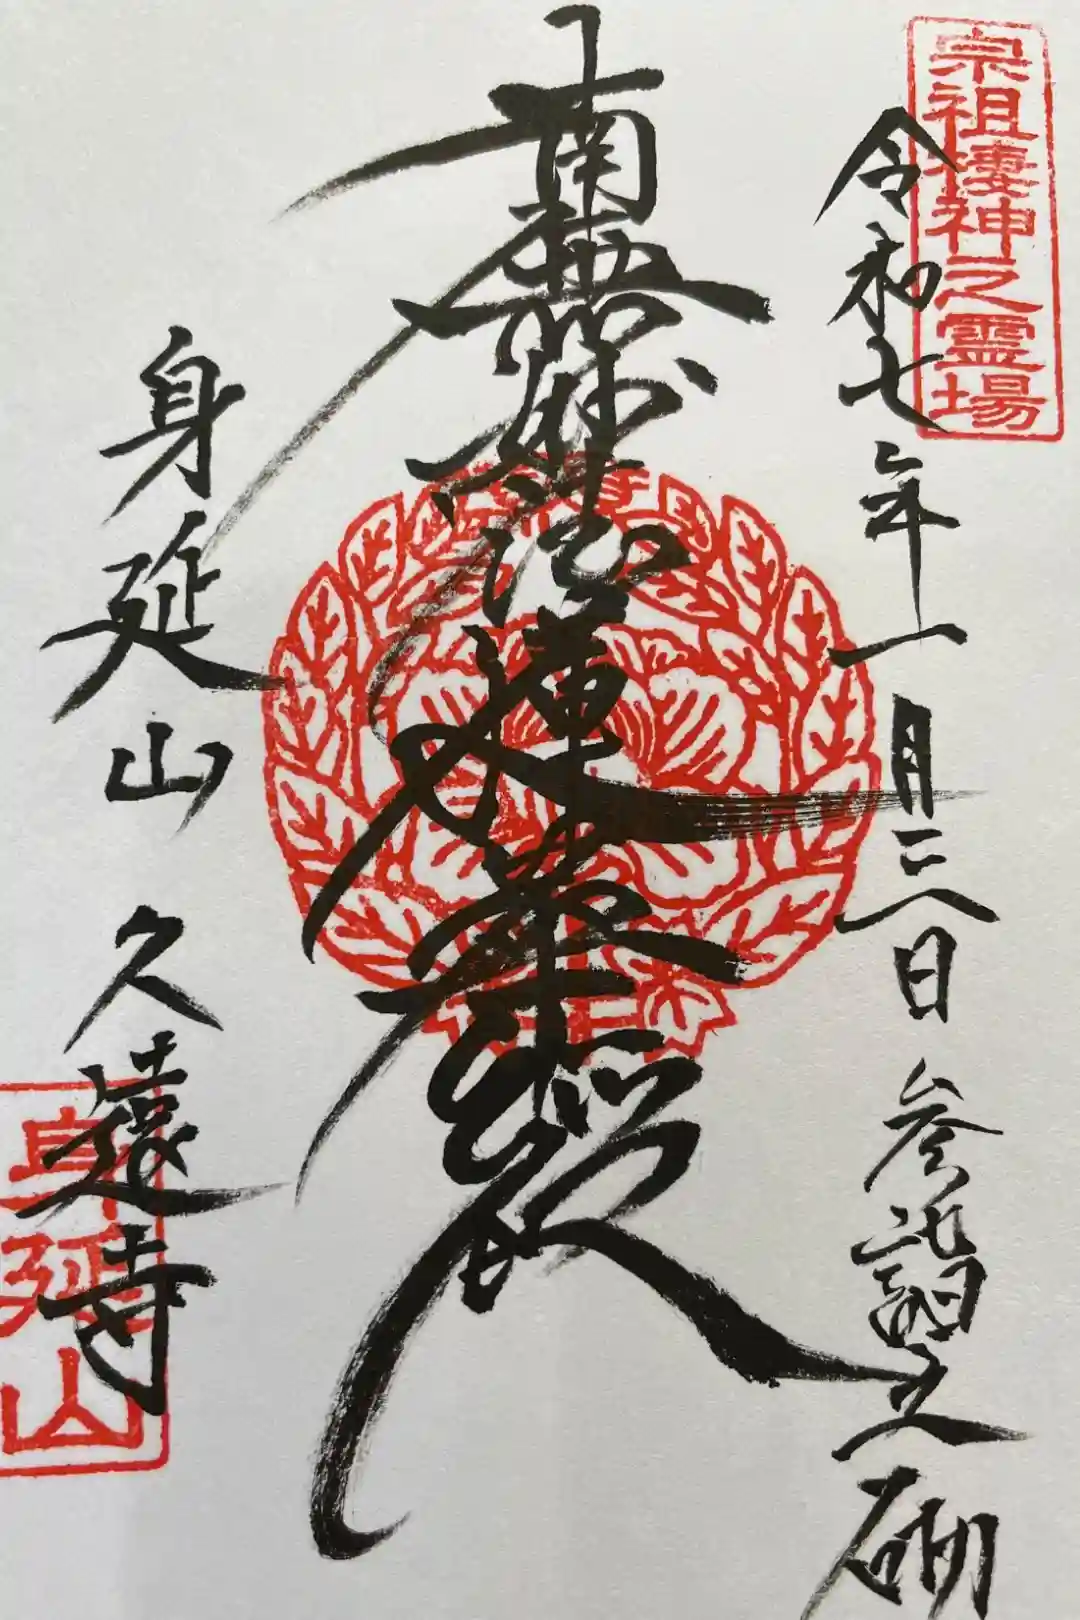 宗祖棲神之霊場
令和七年一月二八日参詣之砌
南無妙法蓮華経
身延山久遠寺
身延山